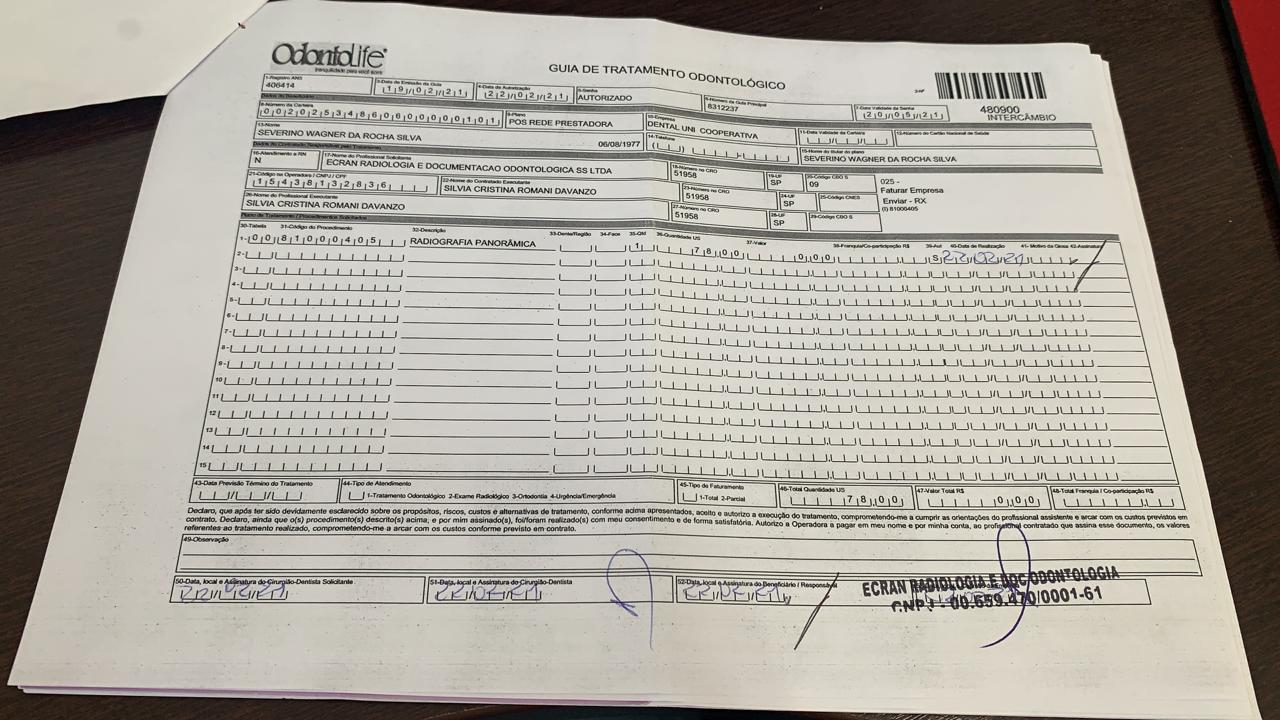 OdontoLife
tranquilidade para você sorrir
GUIA DE TRATAMENTO ODONTOLÓGICO
480900
INTERCÂMBIO
1-Registro ANS
406414
3-Data de Emissão da Guia
19/02/21
4-Data de Autorização
22/02/21
5-Senha
AUTORIZADO
6-Número da Guia Principal
8312237
7-Data Validade da Senha
20/05/21
Dados do Beneficiário
8-Número da Carteira
9-Plano
POS REDE PRESTADORA
10-Empresa
DENTAL UNI COOPERATIVA
11-Data Validade da Carteira
12-Número do Cartão Nacional de Saúde
13-Nome
SEVERINO WAGNER DA ROCHA SILVA
06/08/1977
14-Telefone
15-Nome do titular do plano
SEVERINO WAGNER DA ROCHA SILVA
Dados do Contratado Responsável pelo Tratamento
16-Atendimento a RN
N
17-Nome do Profissional Solicitante
ECRAN RADIOLOGIA E DOCUMENTACAO ODONTOLOGICA SS LTDA
18-Número no CRO
51958
19-UF
SP
20-Código CBO S
09
025 -
Faturar Empresa
Enviar - RX
(I) 81000405
21-Código na Operadora / CNPJ / CPF
15438132836
22-Nome do Contratado Executante
SILVIA CRISTINA ROMANI DAVANZO
23-Número no CRO
51958
24-UF
SP
25-Código CNES
26-Nome do Profissional Executante
SILVIA CRISTINA ROMANI DAVANZO
27-Número no CRO
51958
28-UF
SP
29-Código CBO S
Plano de Tratamento / Procedimentos Solicitados
30-Tabela 31-Código do Procedimento 32-Descrição 33-Dente/Região 34-Face 35-Qtd 36-Quantidade US 37-Valor 38-Franquia/Co-participação R$ 39-Aut 40-Data de Realização 41- Motivo da Glosa 42-Assinatura
1- 00 81000405 RADIOGRAFIA PANORÂMICA 1 78,00 0,00 S 22/02/21
2-
3-
4-
5-
6-
7-
8-
9-
10
11
12
13
14
15
43-Data Previsão Término do Tratamento
44-Tipo de Atendimento
1-Tratamento Odontológico 2-Exame Radiológico 3-Ortodontia 4-Urgência/Emergência
45-Tipo de Faturamento
1-Total 2-Parcial
46-Total Quantidade US
78,00
47-Valor Total R$
0,00
48-Total Franquia / Co-participação R$
Declaro, que após ter sido devidamente esclarecido sobre os propósitos, riscos, custos e alternativas de tratamento, conforme acima apresentados, aceito e autorizo a execução do tratamento, comprometendo-me a cumprir as orientações do profissional assistente e arcar com os custos previstos em
contrato. Declaro, ainda que o(s) procedimento(s) descrito(s) acima, e por mim assinado(s), foi/foram realizado(s) com meu consentimento e de forma satisfatória. Autorizo a Operadora a pagar em meu nome e por minha conta, ao profissional contratado que assina esse documento, os valores
referentes ao tratamento realizado, comprometendo-me a arcar com os custos conforme previsto em contrato.
49-Observação
50-Data, local e Assinatura do Cirurgião-Dentista Solicitante
22/02/21
51-Data, local e Assinatura do Cirurgião-Dentista
22/02/21
52-Data, local e Assinatura do Beneficiário / Responsável
22/02/21
ECRAN RADIOLOGIA E DOC ODONTOLOGIA
CNPJ - 00.659.470/0001-61